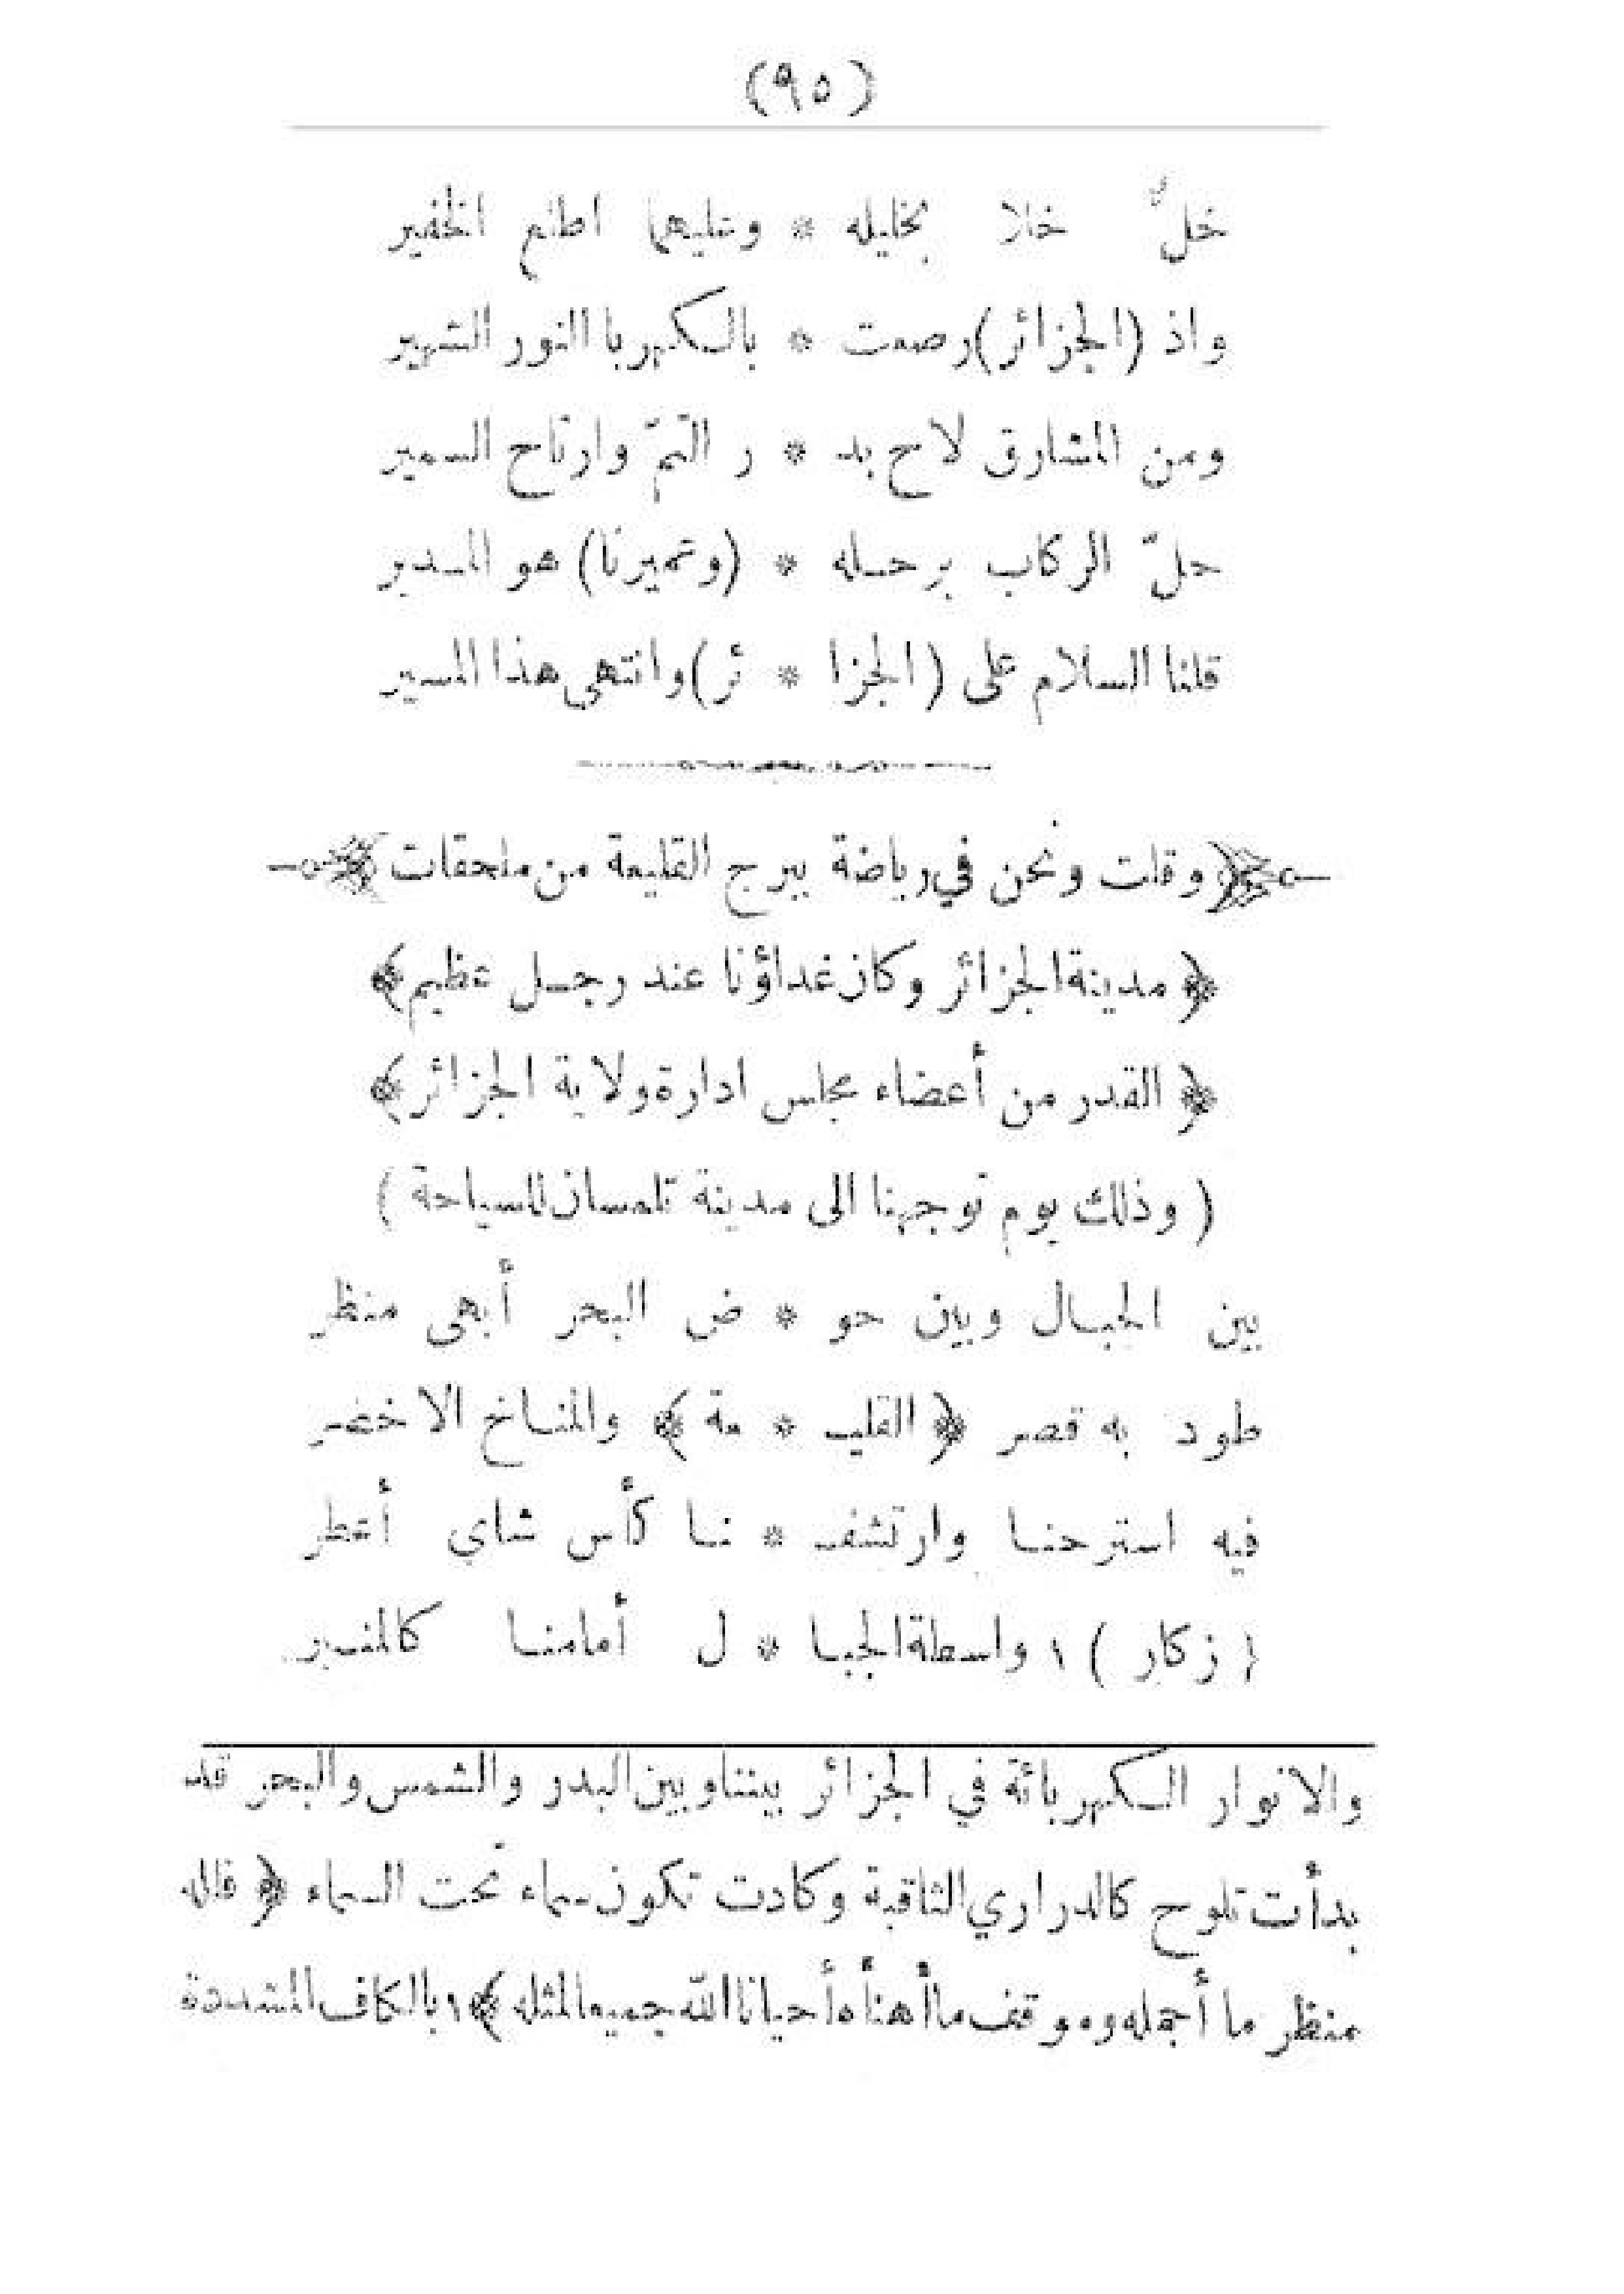 (٩٥)
خلٌّ خلا بخليله * وعليهما اطلع الخفير
واذ (الجزائر) رصعت * بالكهربا النور الشهير
ومن المشارق لاح بد * ر التمّ وارتاح السمير
حلّ الركاب برحله * (وسميرنا) هو المدير
قلنا السلام على (الجزا * ئر) وانتهى هذا المسير
﴿ وقلت ونحن في رياضة ببرج القليعة من ملحقات ﴾
﴿ مدينة الجزائر وكان غداؤنا عند رجل عظيم ﴾
﴿ القدر من أعضاء مجلس ادارة ولاية الجزائر ﴾
( وذلك يوم توجهنا الى مدينة تلمسان للسياحة )
بين الجبال وبين حو * ض البحر أبهى منظر
طود به قصر ﴿ القليـ * عة ﴾ والمناخ الاخضر
فيه استرحنا وارتشفـ * نا كأس شاي أعطر
( زكار ) ١ واسطة الجبا * ل أمامنا كالمنبر
والانوار الكهربائة في الجزائر بيننا وبين البدر والشمس والبحر قد
بدأت تلوح كالدراري الثاقبة وكادت تكون سماء تحت السماء ﴿ فالله
منظر ما أجمله وموقف ما أهنأه أحيانا الله جميعا لمثله ﴾ ١ بالكاف المشددة